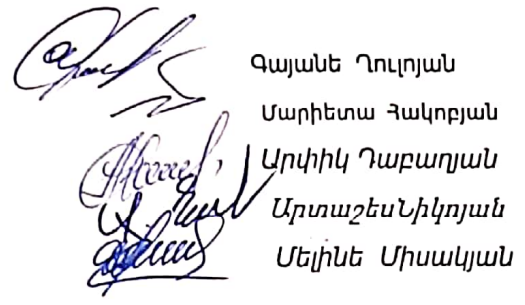 Գայանե Ղուլոյան
Մարիետա Հակոբյան
Արփիկ Դաբաղյան
ԱրտաշեսՆիկոյան
Մելինե Միսակյան